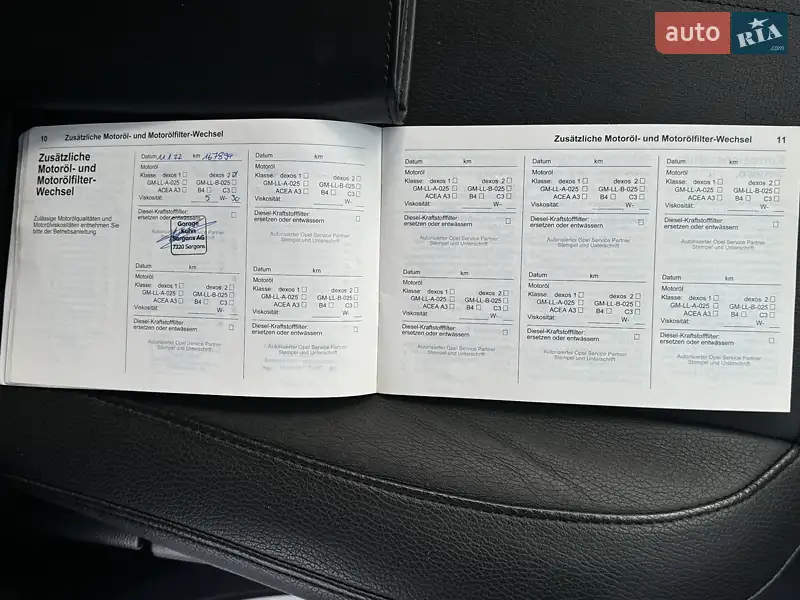 auto
RIA
.com
10 Zusätzliche Motoröl- und Motorölfilter-Wechsel
Zusätzliche
Motoröl- und
Motorölfilter-
Wechsel
Zulässige Motorölqualitäten und
Motorölviskositäten entnehmen Sie
bitte der Betriebsanleitung.
Datum 11.8.22 km
Motoröl
Klasse: dexos 1 ☐ dexos 2 ☑
GM-LL-A-025 ☐ GM-LL-B-025 ☐
ACEA A3 ☐ B4 ☐ C3 ☐
Viskosität: 5 W- 30
Diesel-Kraftstofffilter:
ersetzen oder entwässern ☐
Garage
Kühn
Sargans AG
7320 Sargans
Datum km
Motoröl
Klasse: dexos 1 ☐ dexos 2 ☐
GM-LL-A-025 ☐ GM-LL-B-025 ☐
ACEA A3 ☐ B4 ☐ C3 ☐
Viskosität: W-
Diesel-Kraftstofffilter:
ersetzen oder entwässern ☐
Autorisierter Opel Service Partner
Stempel und Unterschrift
Datum km
Motoröl
Klasse: dexos 1 ☐ dexos 2 ☐
GM-LL-A-025 ☐ GM-LL-B-025 ☐
ACEA A3 ☐ B4 ☐ C3 ☐
Viskosität: W-
Diesel-Kraftstofffilter:
ersetzen oder entwässern ☐
Autorisierter Opel Service Partner
Stempel und Unterschrift
Datum km
Motoröl
Klasse: dexos 1 ☐ dexos 2 ☐
GM-LL-A-025 ☐ GM-LL-B-025 ☐
ACEA A3 ☐ B4 ☐ C3 ☐
Viskosität: W-
Diesel-Kraftstofffilter:
ersetzen oder entwässern ☐
Autorisierter Opel Service Partner
Stempel und Unterschrift
Zusätzliche Motoröl- und Motorölfilter-Wechsel 11
Datum km
Motoröl
Klasse: dexos 1 ☐ dexos 2 ☐
GM-LL-A-025 ☐ GM-LL-B-025 ☐
ACEA A3 ☐ B4 ☐ C3 ☐
Viskosität: W-
Diesel-Kraftstofffilter:
ersetzen oder entwässern ☐
Autorisierter Opel Service Partner
Stempel und Unterschrift
Datum km
Motoröl
Klasse: dexos 1 ☐ dexos 2 ☐
GM-LL-A-025 ☐ GM-LL-B-025 ☐
ACEA A3 ☐ B4 ☐ C3 ☐
Viskosität: W-
Diesel-Kraftstofffilter:
ersetzen oder entwässern ☐
Autorisierter Opel Service Partner
Stempel und Unterschrift
Datum km
Motoröl
Klasse: dexos 1 ☐ dexos 2 ☐
GM-LL-A-025 ☐ GM-LL-B-025 ☐
ACEA A3 ☐ B4 ☐ C3 ☐
Viskosität: W-
Diesel-Kraftstofffilter:
ersetzen oder entwässern ☐
Autorisierter Opel Service Partner
Stempel und Unterschrift
Datum km
Motoröl
Klasse: dexos 1 ☐ dexos 2 ☐
GM-LL-A-025 ☐ GM-LL-B-025 ☐
ACEA A3 ☐ B4 ☐ C3 ☐
Viskosität: W-
Diesel-Kraftstofffilter:
ersetzen oder entwässern ☐
Autorisierter Opel Service Partner
Stempel und Unterschrift
Datum km
Motoröl
Klasse: dexos 1 ☐ dexos 2 ☐
GM-LL-A-025 ☐ GM-LL-B-025 ☐
ACEA A3 ☐ B4 ☐ C3 ☐
Viskosität: W-
Diesel-Kraftstofffilter:
ersetzen oder entwässern ☐
Autorisierter Opel Service Partner
Stempel und Unterschrift
Datum km
Motoröl
Klasse: dexos 1 ☐ dexos 2 ☐
GM-LL-A-025 ☐ GM-LL-B-025 ☐
ACEA A3 ☐ B4 ☐ C3 ☐
Viskosität: W-
Diesel-Kraftstofffilter:
ersetzen oder entwässern ☐
Autorisierter Opel Service Partner
Stempel und Unterschrift